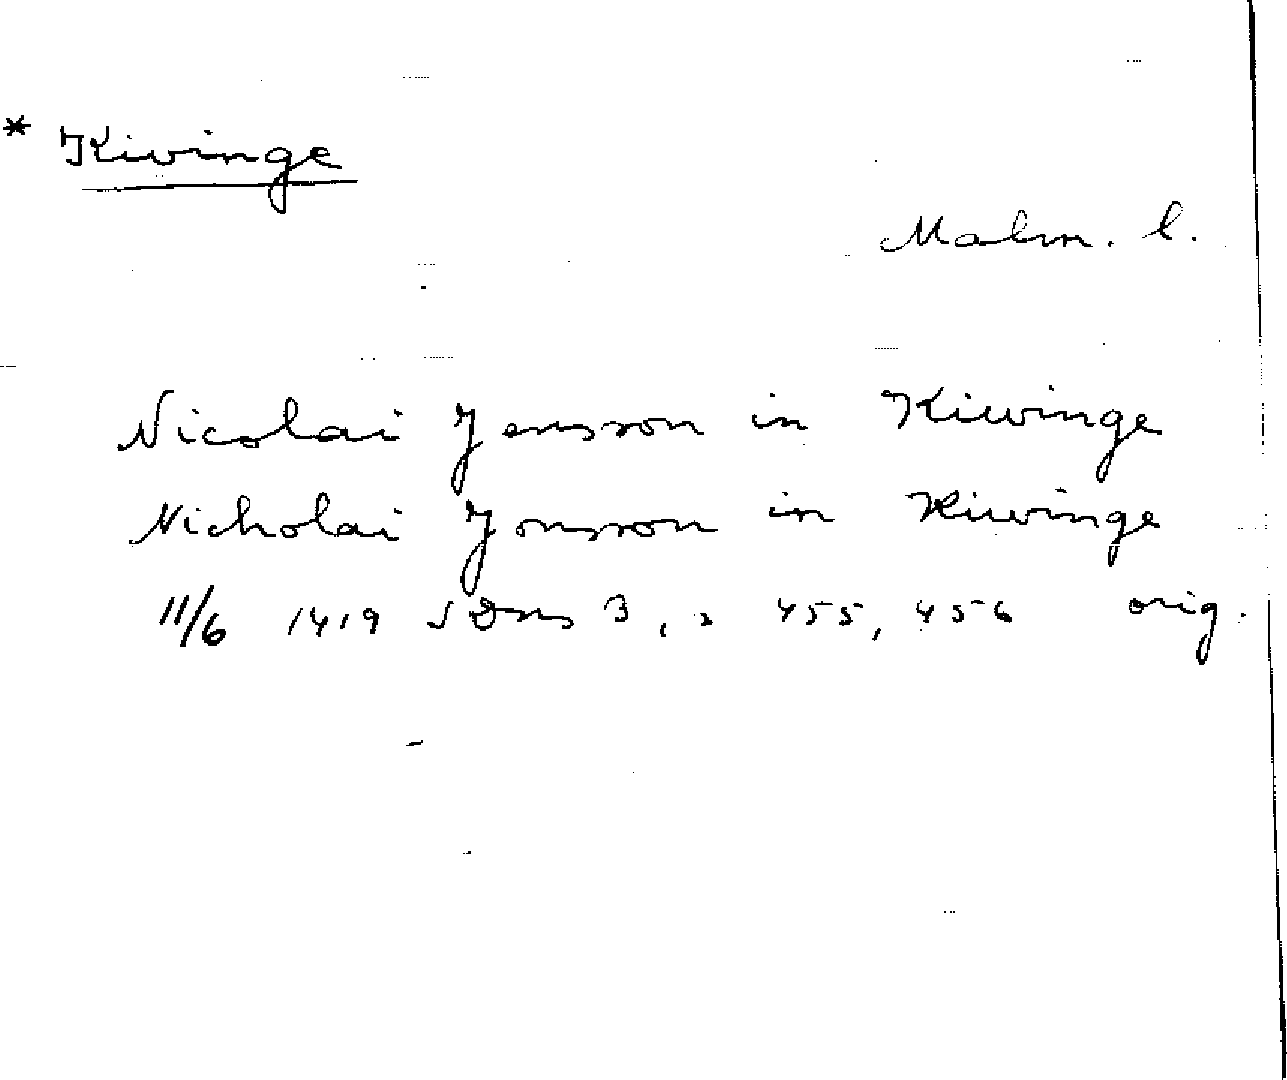 * Kivinge
Malm. l.
Nicolai Jensson in Kiwinge
Nicholai Jonsson in Kiwinge
11/6 1419 SDns 3, s 455, 456 orig.